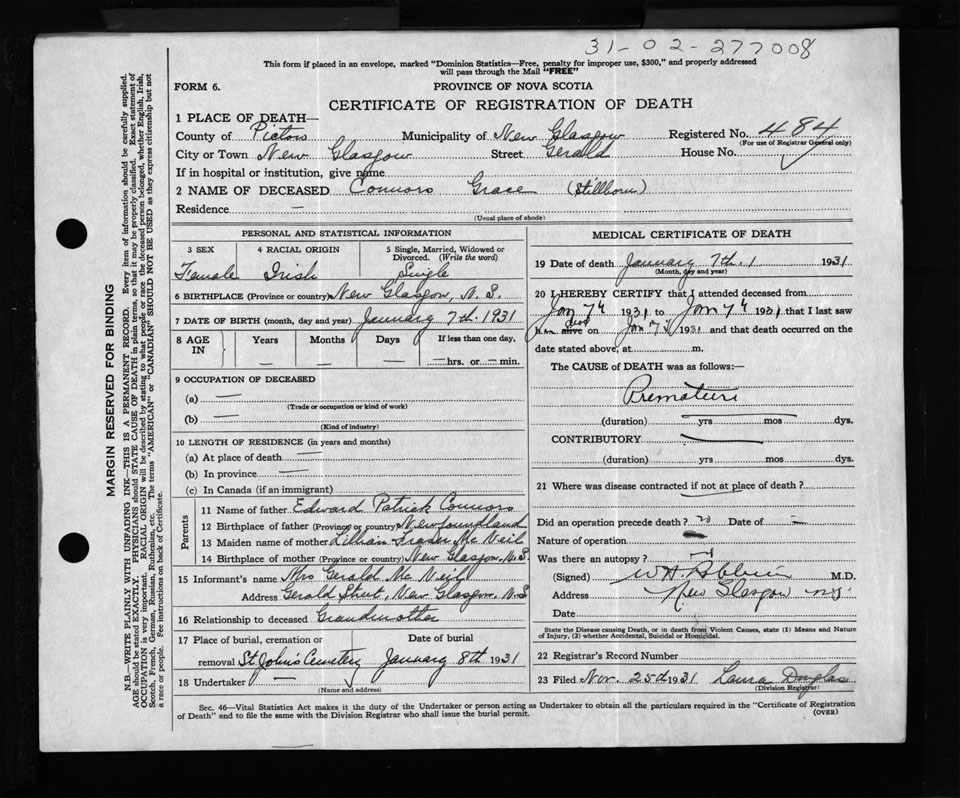 31-02-277008
This form if placed in an envelope, marked "Dominion Statistics—Free, penalty for improper use, $300," and properly addressed
will pass through the Mail "FREE"
FORM 6.
PROVINCE OF NOVA SCOTIA
CERTIFICATE OF REGISTRATION OF DEATH
1 PLACE OF DEATH—
County of Pictou Municipality of New Glasgow Registered No. 484
(For use of Registrar General only)
City or Town New Glasgow Street Gerald House No.
If in hospital or institution, give name
2 NAME OF DECEASED Connors Grace (Stillborn)
Residence —
(Usual place of abode)
PERSONAL AND STATISTICAL INFORMATION
3 SEX 4 RACIAL ORIGIN 5 Single, Married, Widowed or
Divorced. (Write the word)
Female Irish Single
6 BIRTHPLACE (Province or country) New Glasgow, N.S.
7 DATE OF BIRTH (month, day and year) January 7th. 1931
8 AGE IN Years Months Days If less than one day,
— — — — hrs. or — min.
9 OCCUPATION OF DECEASED
(a) —
(Trade or occupation or kind of work)
(b) —
(Kind of industry)
10 LENGTH OF RESIDENCE (in years and months)
(a) At place of death —
(b) In province —
(c) In Canada (if an immigrant)
Parents
11 Name of father Edward Patrick Connors
12 Birthplace of father (Province or country) Newfoundland
13 Maiden name of mother Lillian Fraser McNeil
14 Birthplace of mother (Province or country) New Glasgow, N.S.
15 Informant's name Mrs Gerald McNeil
Address Gerald Street, New Glasgow, N.S
16 Relationship to deceased Grandmother
17 Place of burial, cremation or Date of burial
removal St. John's Cemetery January 8th 1931
18 Undertaker —
(Name and address)
MEDICAL CERTIFICATE OF DEATH
19 Date of death January 7th. 1931
(Month, day and year)
20 I HEREBY CERTIFY that I attended deceased from
Jan 7th 1931 to Jan 7th 1931 that I last saw
h alive on Jan 7 1931 and that death occurred on
date stated above, at m.
The CAUSE of DEATH was as follows:—
Premature
(duration) yrs mos dys.
CONTRIBUTORY
(duration) yrs mos dys.
21 Where was disease contracted if not at place of death?
Did an operation precede death? no Date of —
Nature of operation
Was there an autopsy?
(Signed) M.D.
Address New Glasgow N.S.
Date
State the Disease causing Death, or in death from Violent Causes, state (1) Means and Nature
of Injury, (2) whether Accidental, Suicidal or Homicidal.
22 Registrar's Record Number
23 Filed Nov. 25th 1931 Laura Douglas
(Division Registrar)
Sec. 46—Vital Statistics Act makes it the duty of the Undertaker or person acting as Undertaker to obtain all the particulars required in the "Certificate of Registration
of Death" and to file the same with the Division Registrar who shall issue the burial permit.
(OVER)
MARGIN RESERVED FOR BINDING
N.B.—WRITE PLAINLY WITH UNFADING INK—THIS IS A PERMANENT RECORD. Every item of information should be carefully supplied.
AGE should be stated EXACTLY. PHYSICIANS should STATE CAUSE OF DEATH in plain terms, so that it may be properly classified. Exact statement of
OCCUPATION is very important. RACIAL ORIGIN will be described by stating to what people or race the deceased person belonged, whether English, Irish,
Scotch, French, German, Russian, Ruthenian, etc. The terms "AMERICAN" or "CANADIAN" SHOULD NOT BE USED as they express citizenship but not
a race or people. Fee instructions on back of Certificate.